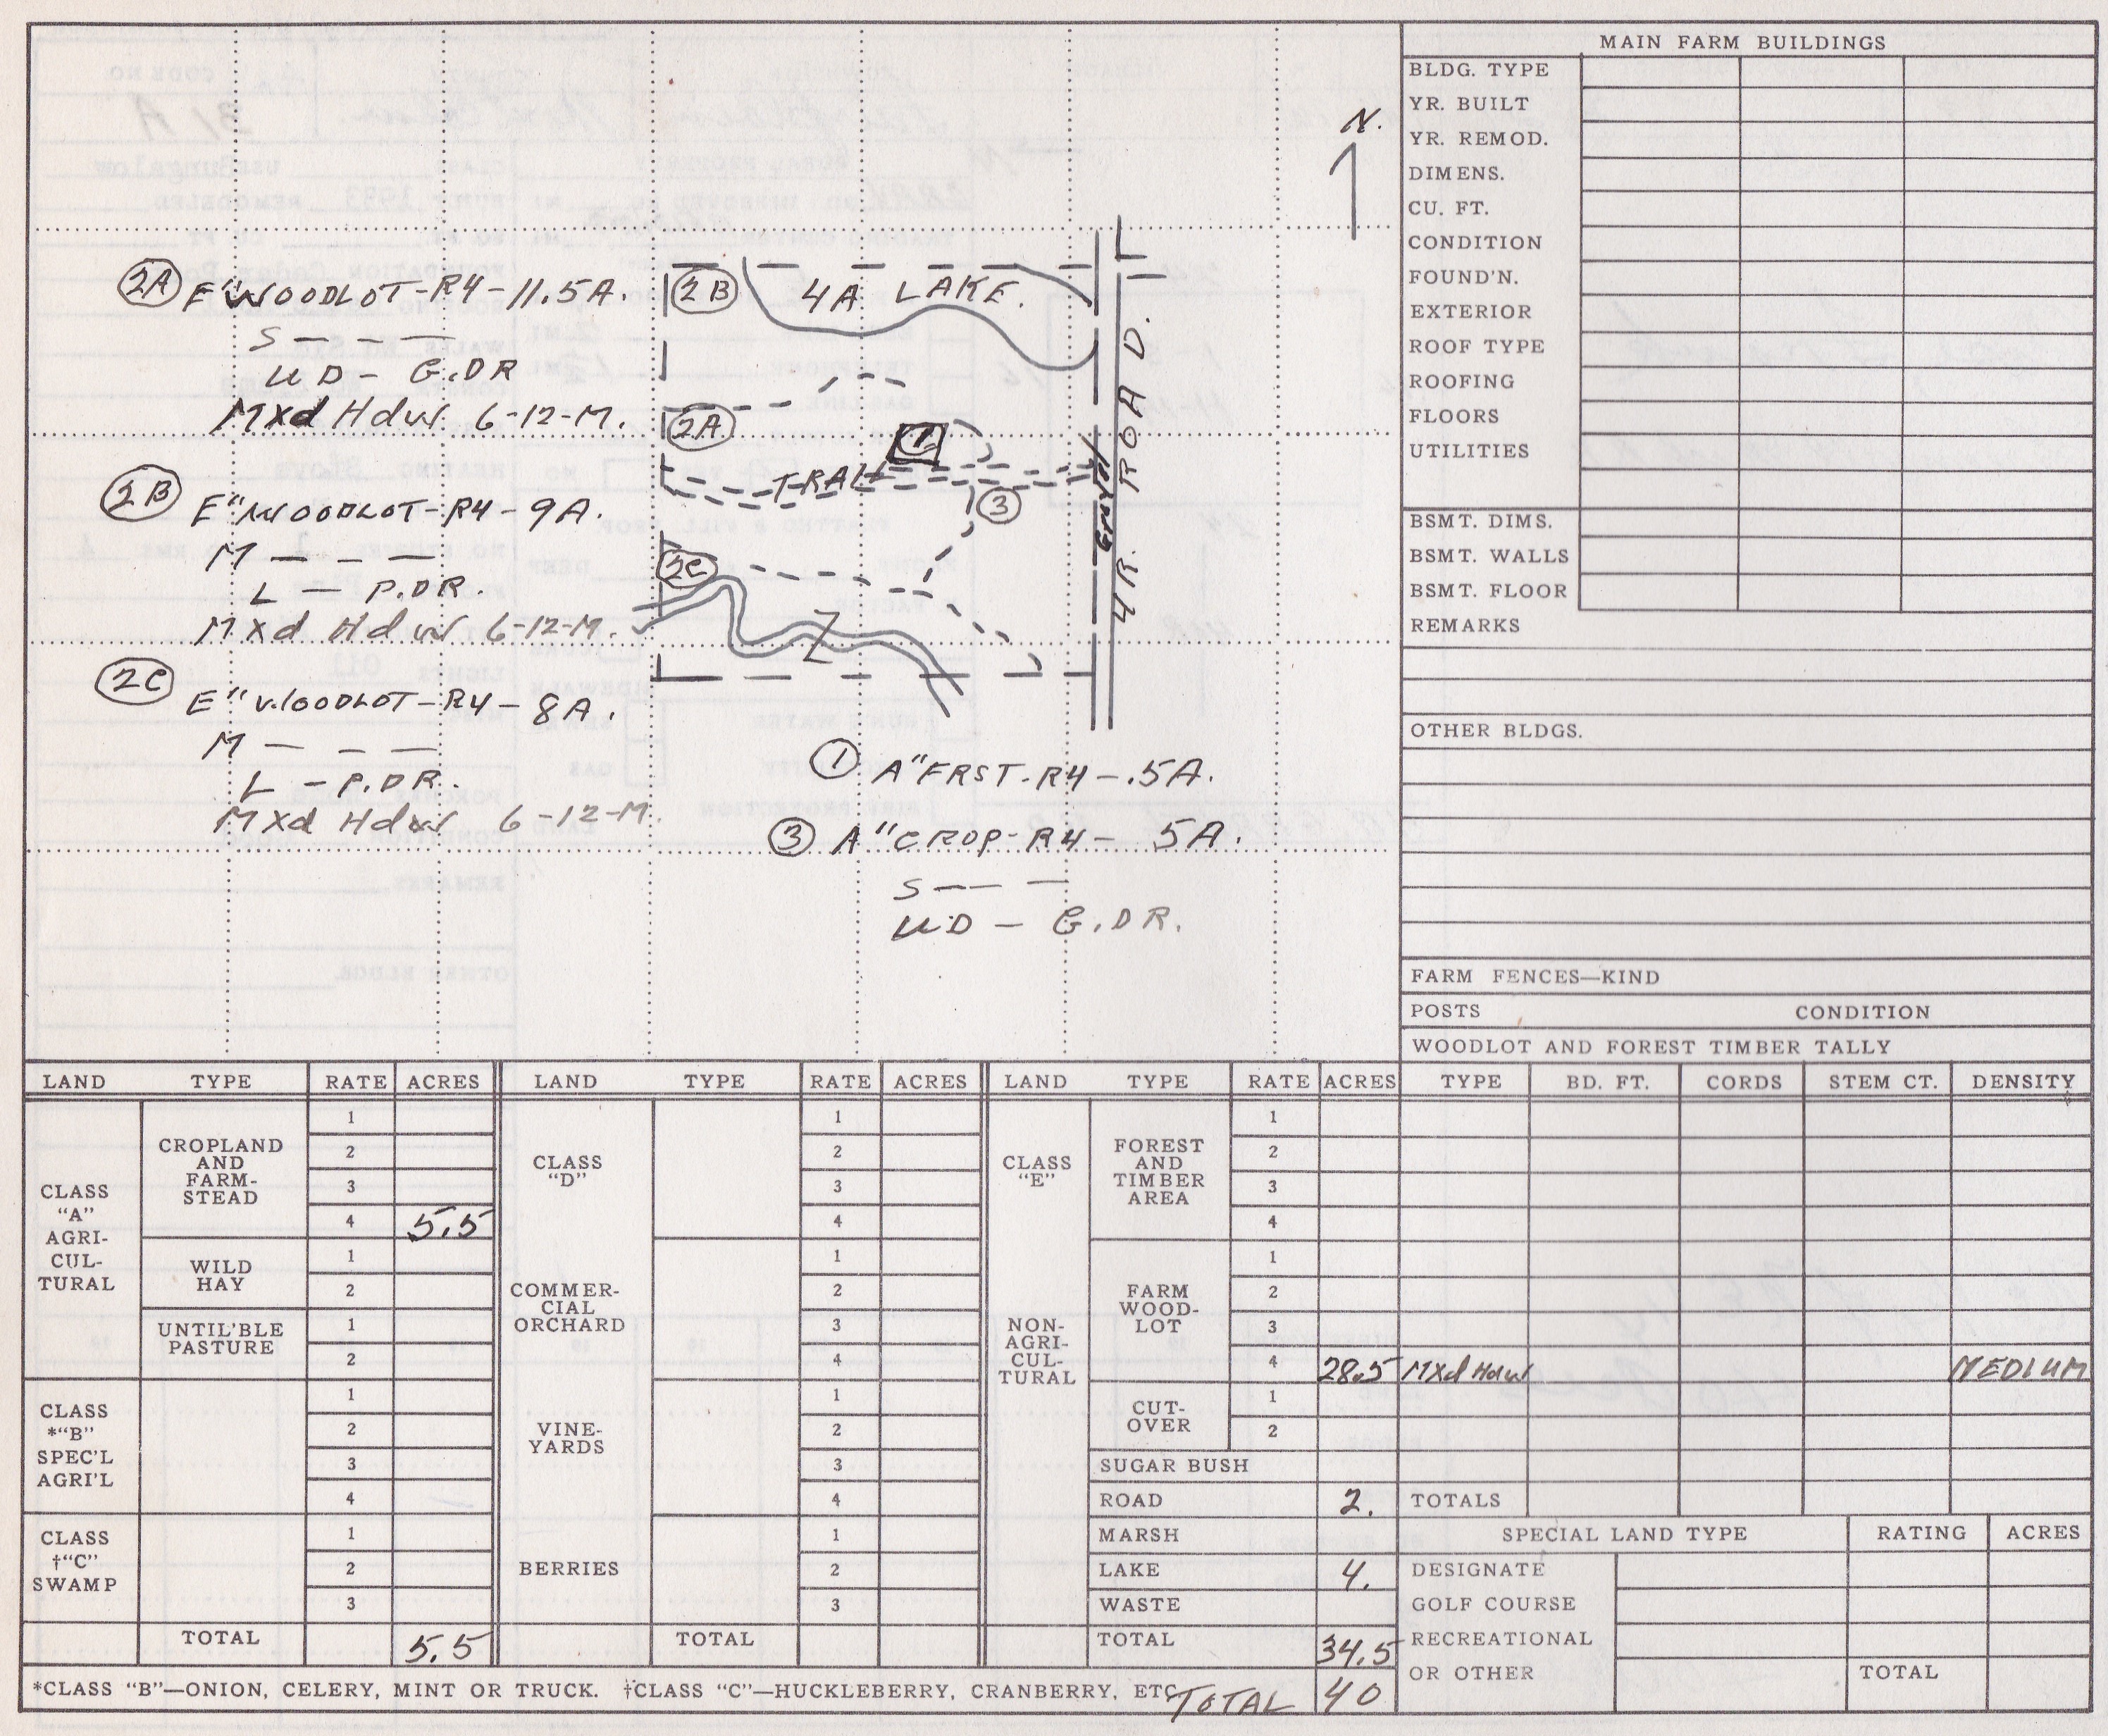 N.
2A E"WOODLOT-R4-11.5A.
S — — —
UD - G.DR
Mxd Hdw 6-12-M.
2B E"WOODLOT-R4-9A.
M — — —
L — P.DR.
Mxd Hdw 6-12-M.
2C E"WOODLOT-R4-8A.
M — — —
L - P.DR.
Mxd Hdw 6-12-M.
2B 4A LAKE.
2A
1
TRAIL
3
2C
Z
4R. ROAD.
1 A"FRST-R4-.5A.
3 A"CROP-R4- 5A.
S — — —
UD - G.DR.
MAIN FARM BUILDINGS
BLDG. TYPE
YR. BUILT
YR. REMOD.
DIMENS.
CU. FT.
CONDITION
FOUND'N.
EXTERIOR
ROOF TYPE
ROOFING
FLOORS
UTILITIES
BSMT. DIMS.
BSMT. WALLS
BSMT. FLOOR
REMARKS
OTHER BLDGS.
FARM FENCES—KIND
POSTS CONDITION
WOODLOT AND FOREST TIMBER TALLY
LAND TYPE RATE ACRES LAND TYPE RATE ACRES LAND TYPE RATE ACRES TYPE BD. FT. CORDS STEM CT. DENSITY
CLASS
"A"
AGRI-
CUL-
TURAL
CROPLAND
AND
FARM-
STEAD
1
2
3
4 5.5
WILD
HAY
1
2
UNTIL'BLE
PASTURE
1
2
CLASS
*"B"
SPEC'L
AGRI'L
1
2
3
4
CLASS
†"C"
SWAMP
1
2
3
TOTAL 5.5
CLASS
"D"
1
2
3
4
COMMER-
CIAL
ORCHARD
1
2
3
4
VINE-
YARDS
1
2
3
4
BERRIES
1
2
3
TOTAL
CLASS
"E"
NON-
AGRI-
CUL-
TURAL
FOREST
AND
TIMBER
AREA
1
2
3
4
FARM
WOOD-
LOT
1
2
3
4 28.5 Mxd Hdw MEDIUM
CUT-
OVER
1
2
SUGAR BUSH
ROAD 2. TOTALS
MARSH
LAKE 4.
WASTE
TOTAL 34.5
SPECIAL LAND TYPE RATING ACRES
DESIGNATE
GOLF COURSE
RECREATIONAL
OR OTHER TOTAL
*CLASS "B"—ONION, CELERY, MINT OR TRUCK. †CLASS "C"—HUCKLEBERRY, CRANBERRY, ETC. TOTAL 40